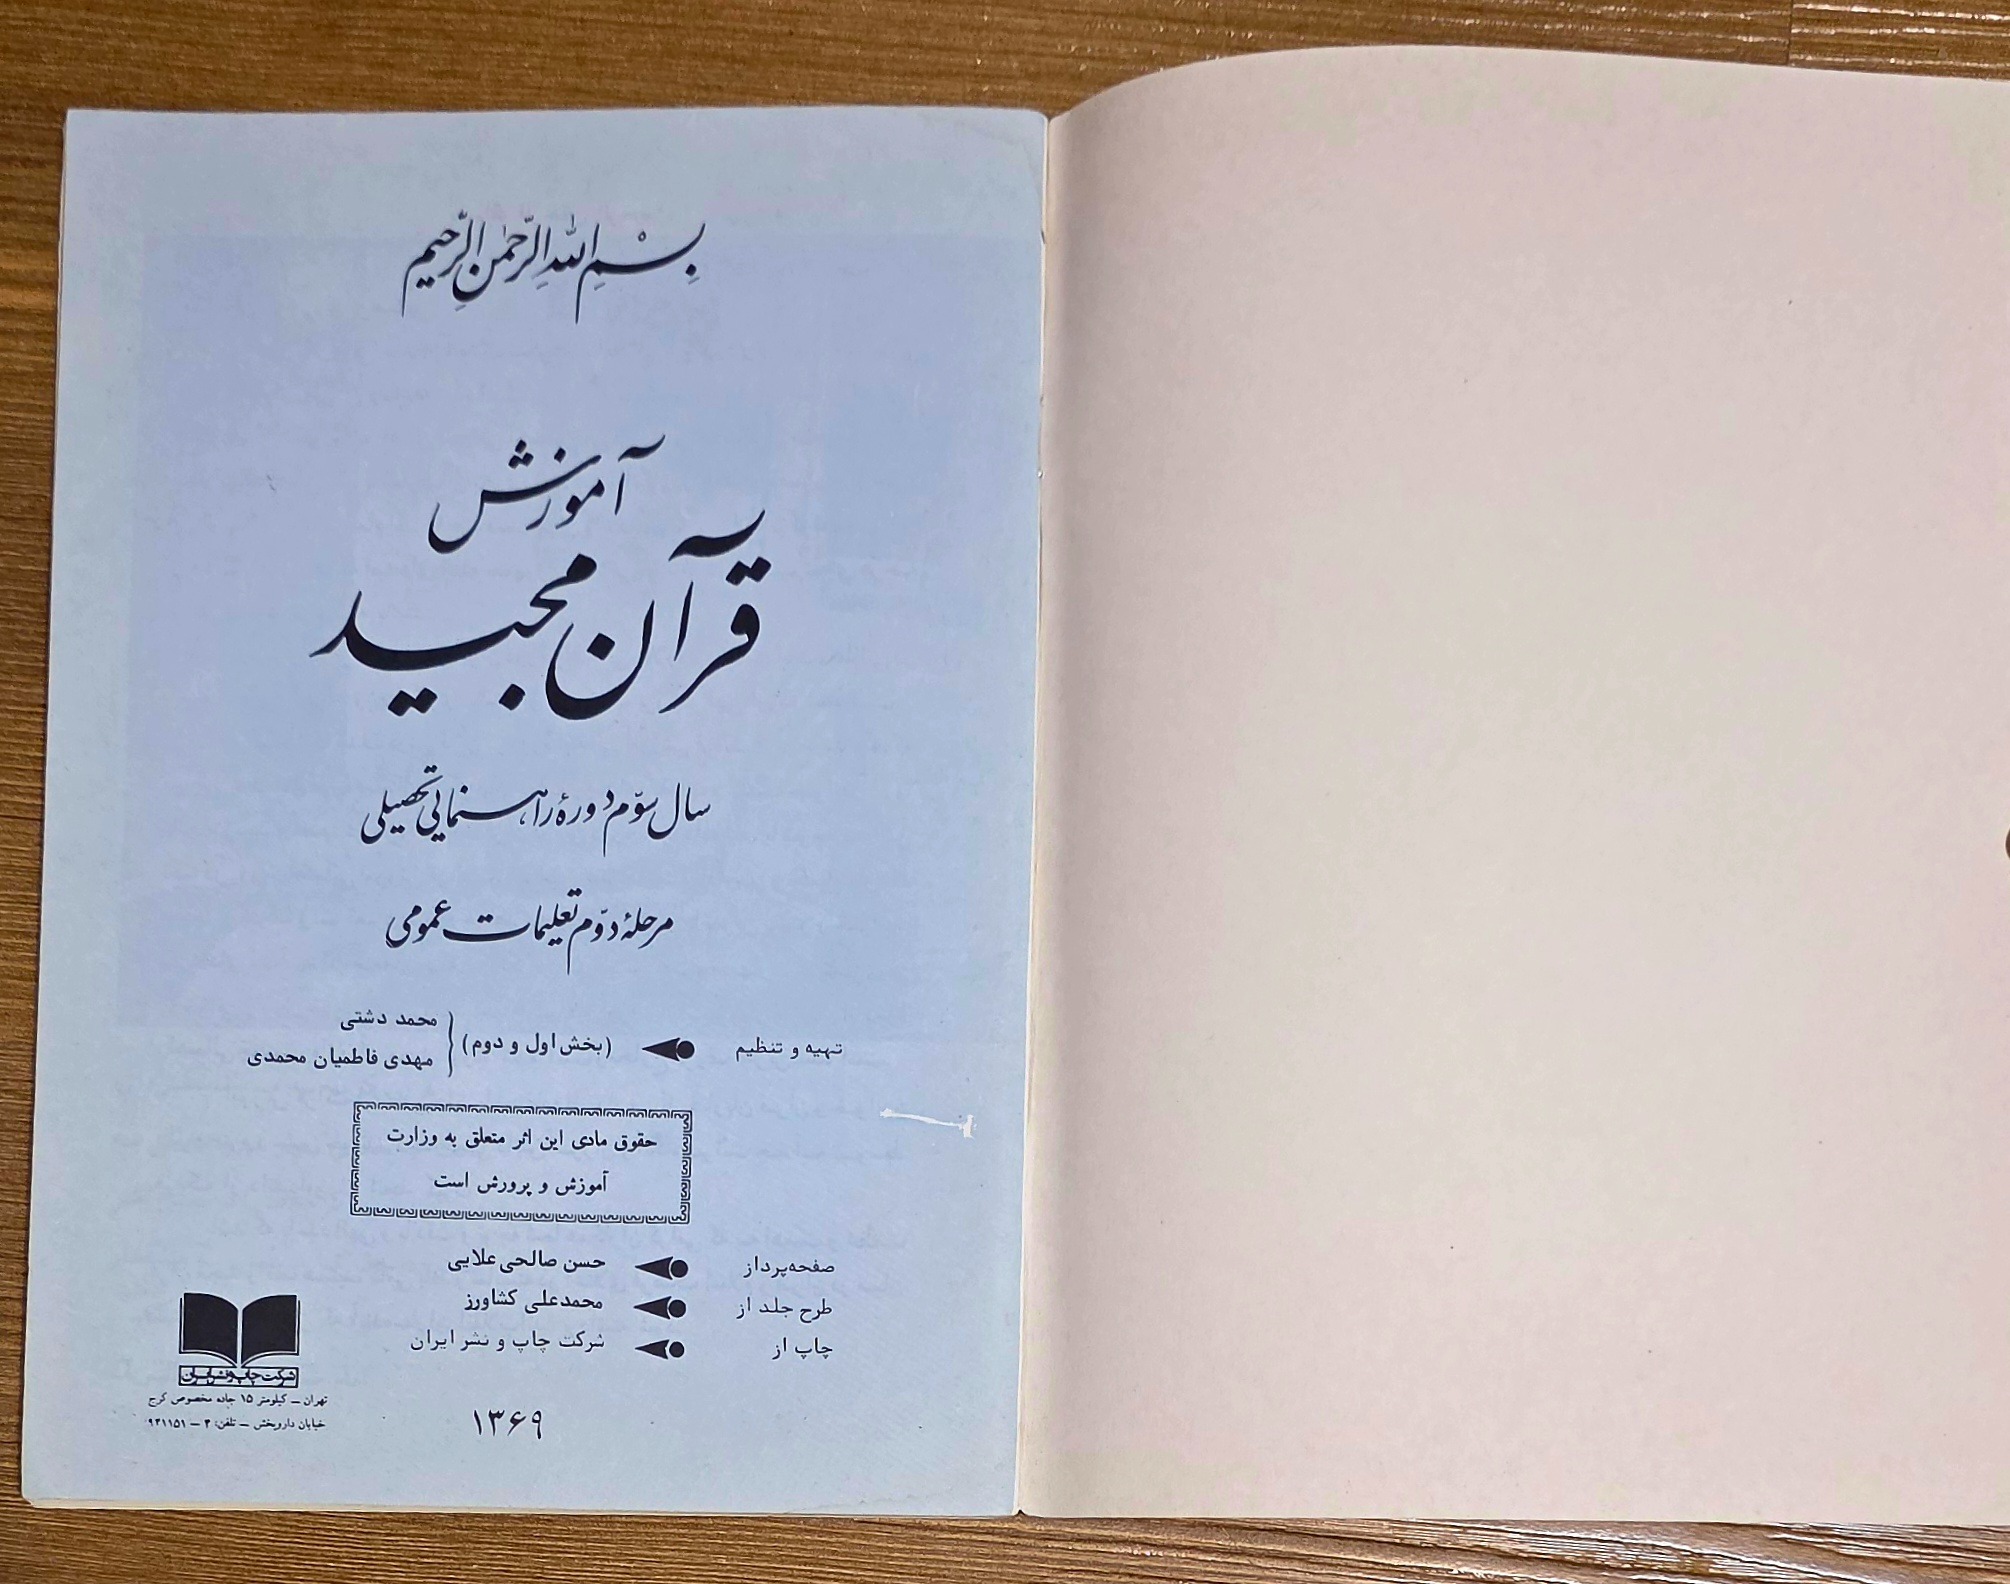 بِسْمِ اللهِ الرَّحْمٰنِ الرَّحِیمِ
آموزش
قرآن مجید
سال سوّم دورۀ راهنمایی تحصیلی
مرحلۀ دوّم تعلیمات عمومی
تهیه و تنظیم (بخش اول و دوم) محمد دشتی
مهدی فاطمیان محمدی
حقوق مادی این اثر متعلق به وزارت
آموزش و پرورش است
صفحه‌پرداز حسن صالحی علایی
طرح جلد از محمدعلی کشاورز
چاپ از شرکت چاپ و نشر ایران
شرکت چاپ و نشر ایران
تهران ــ کیلومتر ۱۵ جاده مخصوص کرج
خیابان داروپخش ــ تلفن:
۱۳۶۹